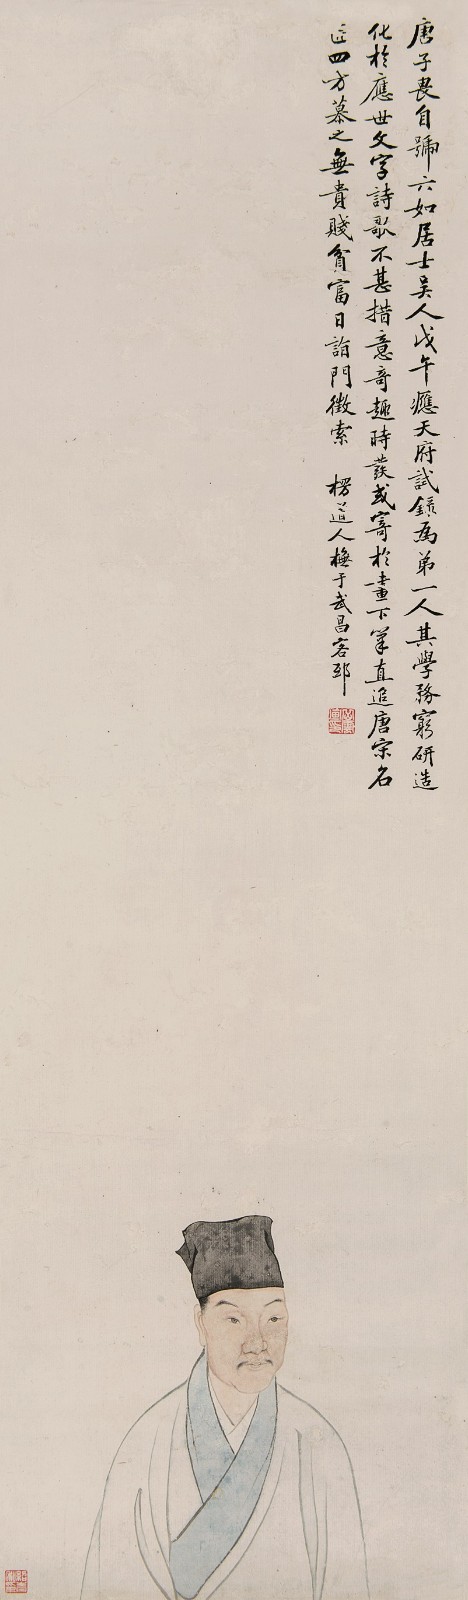 唐子畏自號六如居士吴人戊午應天府試錄為第一人其學務窮研造
化於應世文字詩歌不甚措意奇趣時發或寄於畫下筆直追唐宋名
匠四方慕之無貴賤貧富日詣門徵索
楞道人橅于武昌客邸